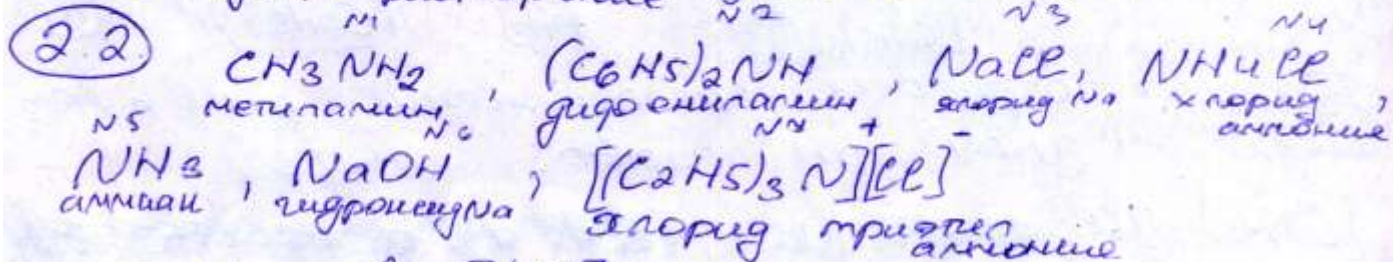 N1 N2 N3 N4
2.2. CH3NH2, (C6H5)2NH, NaCl, NH4Cl
метиламин, дифениламин, хлорид Na хлорид аммония,
N5 N6 N7 + -
NH3, NaOH, [(C2H5)3N][Cl]
аммиак, гидроксид Na хлорид триэтил аммония